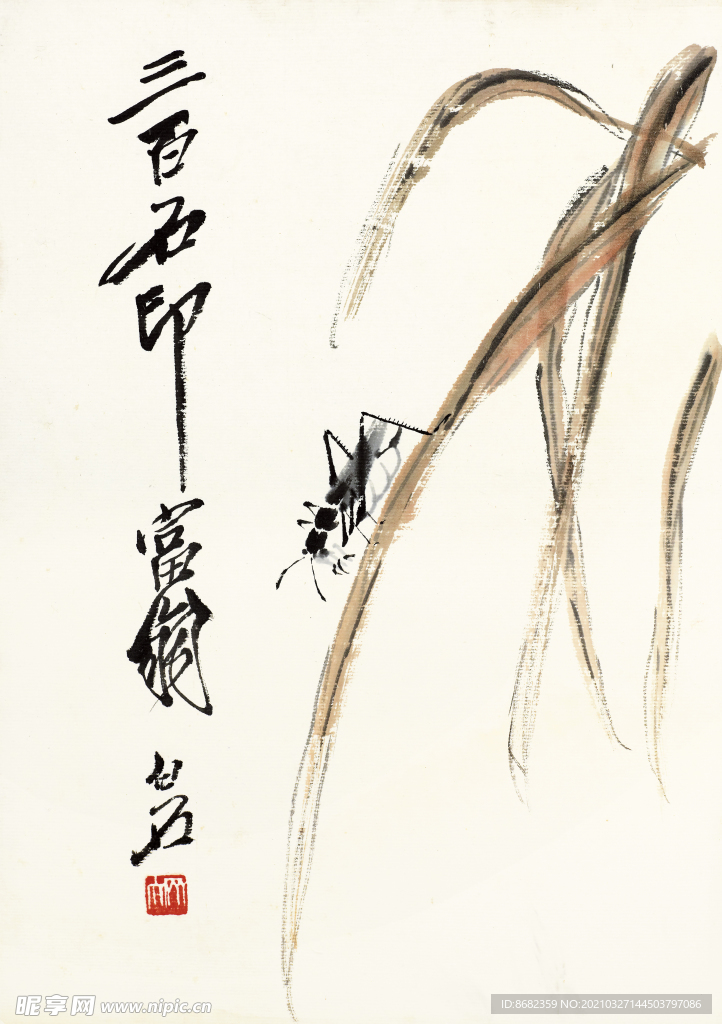 三百石印富翁
白石
昵享网 www.nipic.cn
ID:8682359 NO:20210327144503797086